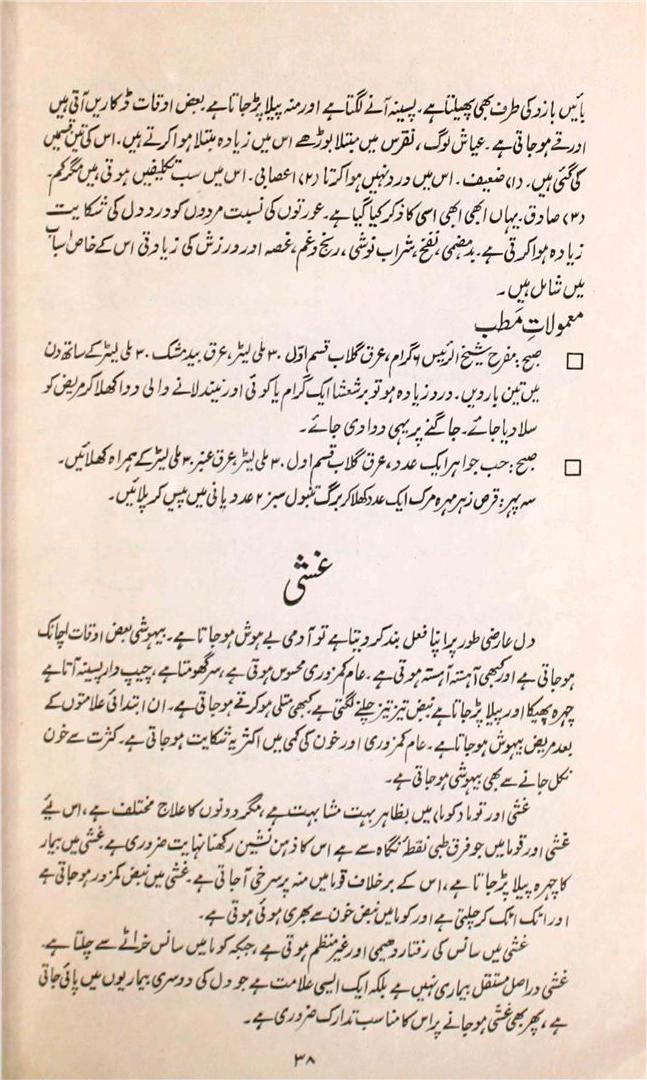 بائیں بازو کی طرف بھی پھیلتا ہے۔ پسینہ آنے لگتا ہے اور منہ پیلا پڑ جاتا ہے بعض اوقات ڈکاریں آتی ہیں
اور قے ہو جاتی ہے۔ عیاش لوگ، نقرس میں مبتلا بوڑھے اس میں زیادہ مبتلا ہوا کرتے ہیں۔ اس کی تین قسمیں
کی گئی ہیں۔ (۱) ضعیف۔ اس میں درد نہیں ہوا کرتا (۲) اعصابی۔ اس میں سب تکلیفیں ہوتی ہیں مگر کم۔
(۳) صادق۔ یہاں ابھی ابھی اسی کا ذکر کیا گیا ہے۔ عورتوں کی نسبت مردوں کو درد دل کی شکایت
زیادہ ہوا کرتی ہے۔ بدہضمی، نفخ، شراب نوشی، رنج و غم، غصہ اور ورزش کی زیادتی اس کے خاص اسباب
میں شامل ہیں۔
معمولاتِ مَطب
□ صبح: مفرح شیخ الرئیس ۶ گرام، عرق گلاب قسم اوّل ۳۰ ملی لیٹر، عرق بید مشک ۳۰ ملی لیٹر کے ساتھ دن
میں تین بار دیں۔ درد زیادہ ہو تو برشعشا ایک گرام یا کوئی اور نیند لانے والی دوا کھلا کر مریض کو
سلا دیا جائے۔ جاگنے پر یہی دوا دی جائے۔
□ صبح: حب جواہر ایک عدد، عرق گلاب قسم اول ۳۰ ملی لیٹر، عرق عنبر ۳۰ ملی لیٹر کے ہمراہ کھلائیں۔
سہ پہر: قرص زہر مہرہ مرک ایک عدد کھلا کر برگ تنبول سبز ۲ عدد پانی میں پیس کر پلائیں۔
غشی
دل عارضی طور پر اپنا فعل بند کر دیتا ہے تو آدمی بے ہوش ہو جاتا ہے۔ بیہوشی بعض اوقات اچانک
ہو جاتی ہے اور کبھی آہستہ آہستہ ہوتی ہے۔ عام کمزوری محسوس ہوتی ہے، سر گھومتا ہے، چیپ دار پسینہ آتا ہے
چہرہ پھیکا اور پیلا پڑ جاتا ہے نبض تیز تیز چلنے لگتی ہے کبھی متلی ہو کر قے ہو جاتی ہے۔ ان ابتدائی علامتوں کے
بعد مریض بیہوش ہو جاتا ہے۔ عام کمزوری اور خون کی کمی میں اکثر یہ شکایت ہو جاتی ہے۔ کثرت سے خون
نکل جانے سے بھی بیہوشی ہو جاتی ہے۔
غشی اور قوما (کوما) میں بظاہر بہت مشابہت ہے، مگر دونوں کا علاج مختلف ہے، اس لیے
غشی اور قوما میں جو فرق طبی نقطۂ نگاہ سے ہے اس کا ذہن نشین رکھنا نہایت ضروری ہے۔ غشی میں بیمار
کا چہرہ پیلا پڑ جاتا ہے، اس کے برخلاف قوما میں منہ پر سرخی آ جاتی ہے۔ غشی میں نبض کمزور ہو جاتی ہے
اور اٹک اٹک کر چلتی ہے اور کوما میں نبض خون سے بھری ہوئی ہوتی ہے۔
غشی میں سانس کی رفتار دھیمی اور غیر منظم ہوتی ہے، جبکہ کوما میں سانس خراٹے سے چلتا ہے۔
غشی دراصل مستقل بیماری نہیں ہے بلکہ ایک ایسی علامت ہے جو دل کی دوسری بیماریوں میں پائی جاتی
ہے، پھر بھی غشی ہو جانے پر اس کا مناسب تدارک ضروری ہے۔
۳۸